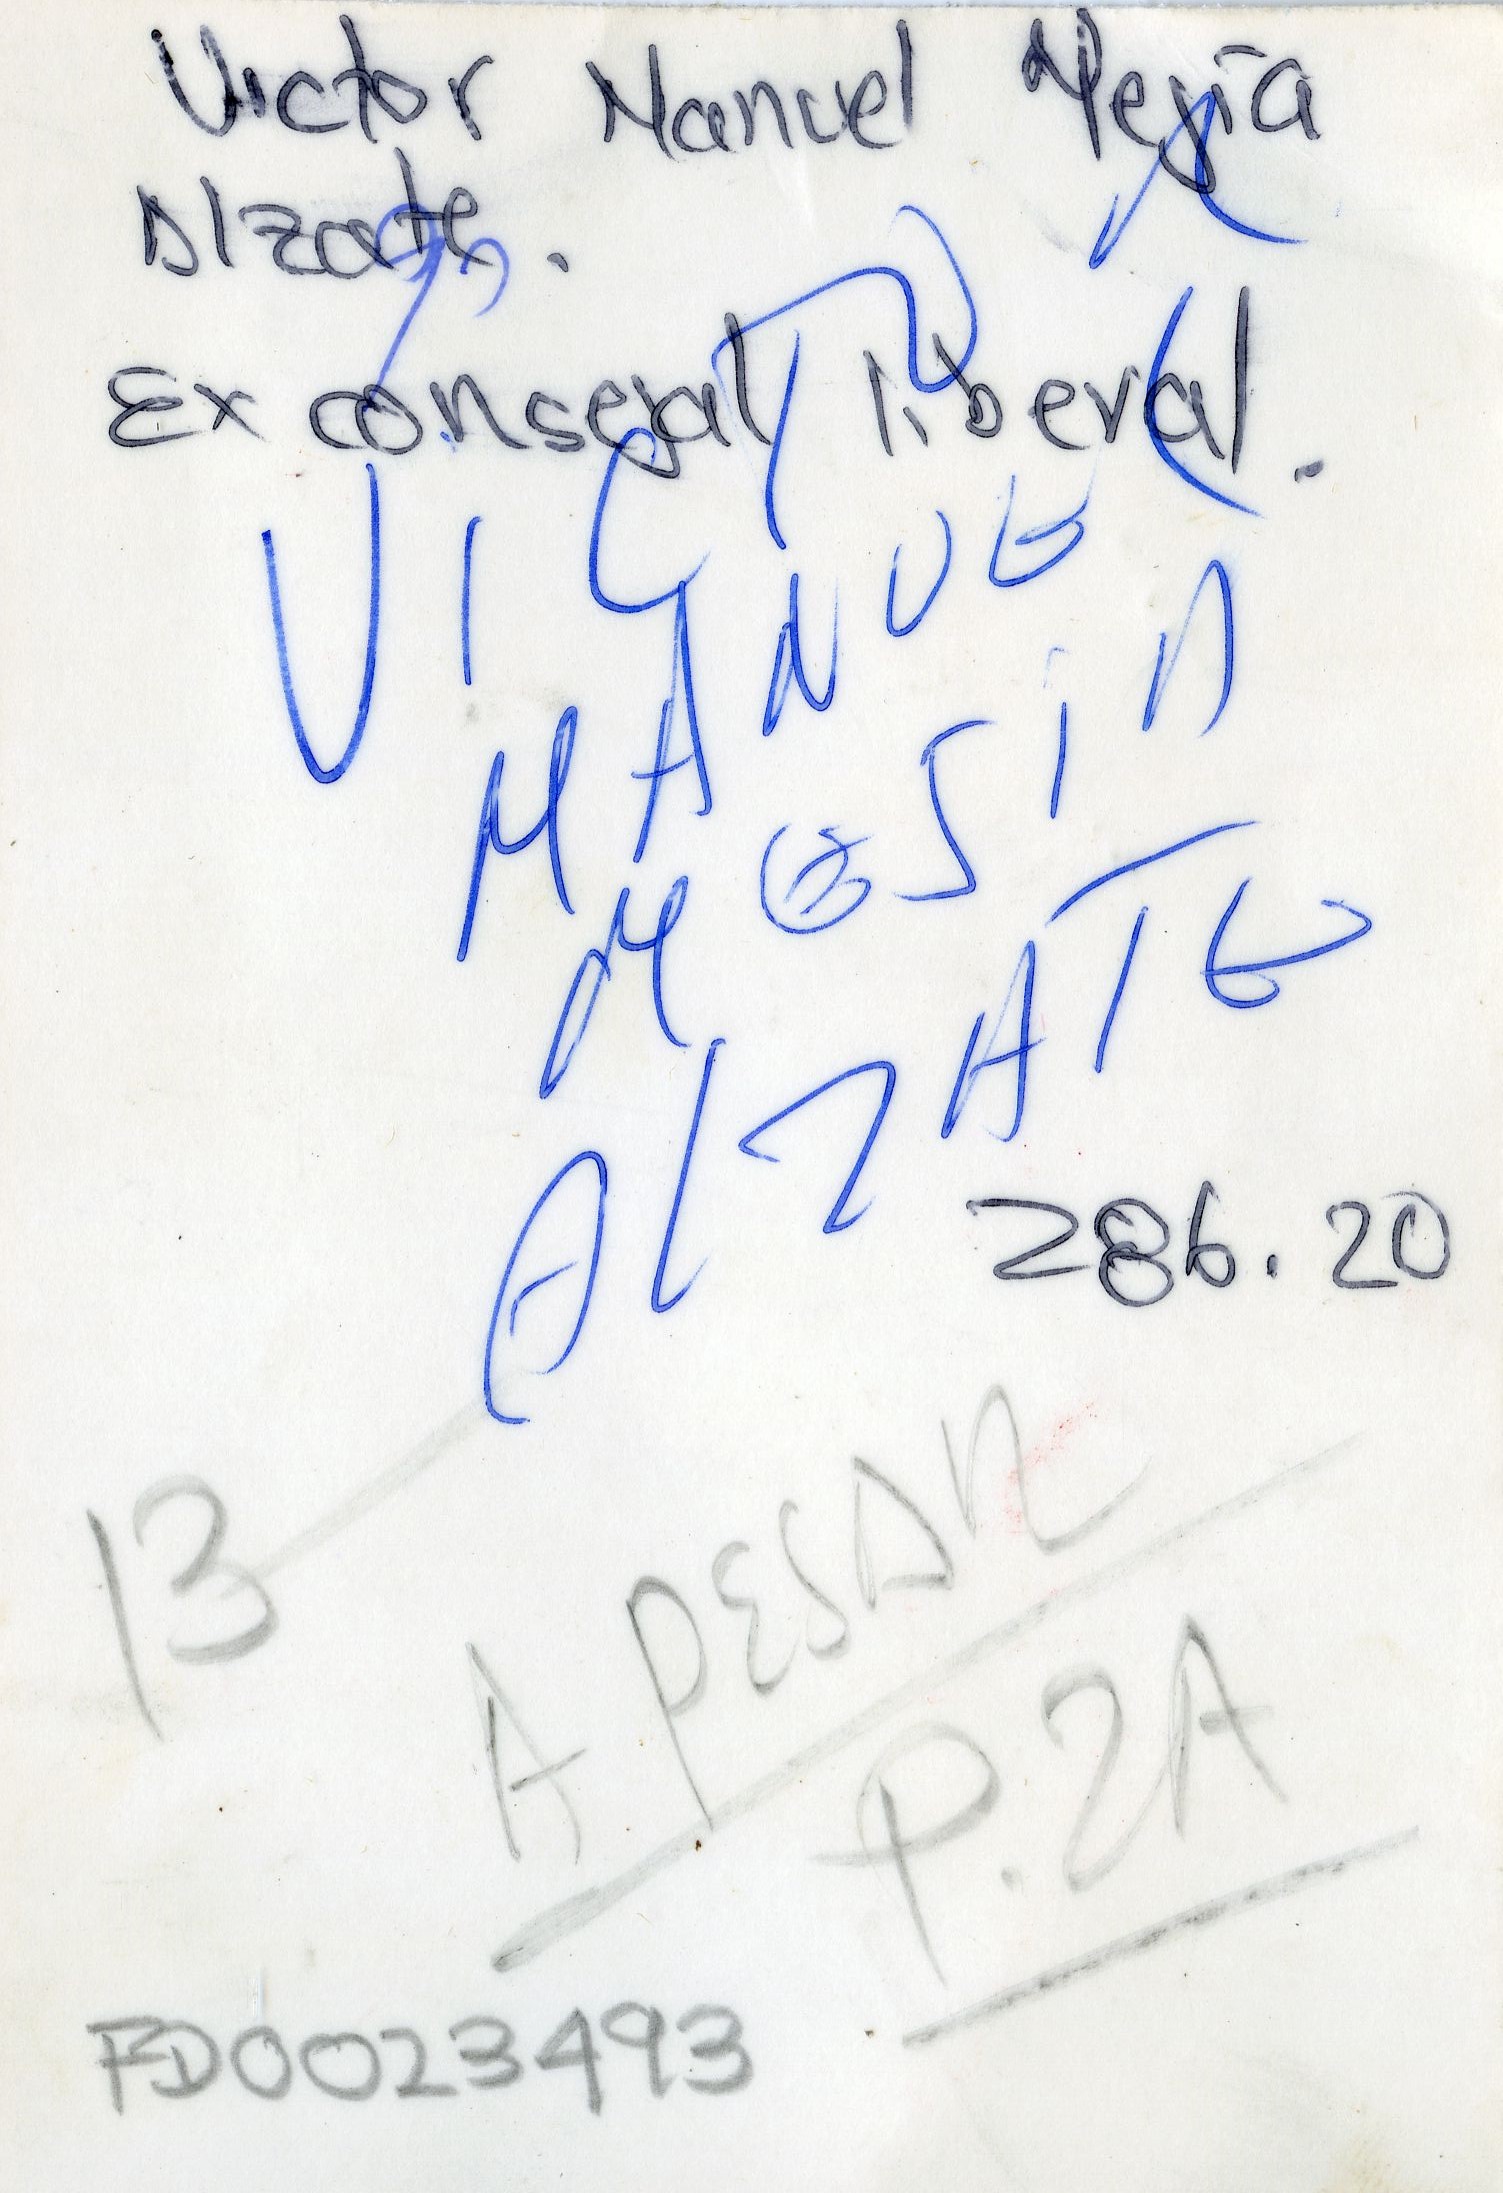 Victor Manuel Mejia
Alzate.
Ex consejal liberal.
VICTOR
MANUEL
MESIA
AlZATE
286.20
13
A PESAR
P.2A
FD0023493